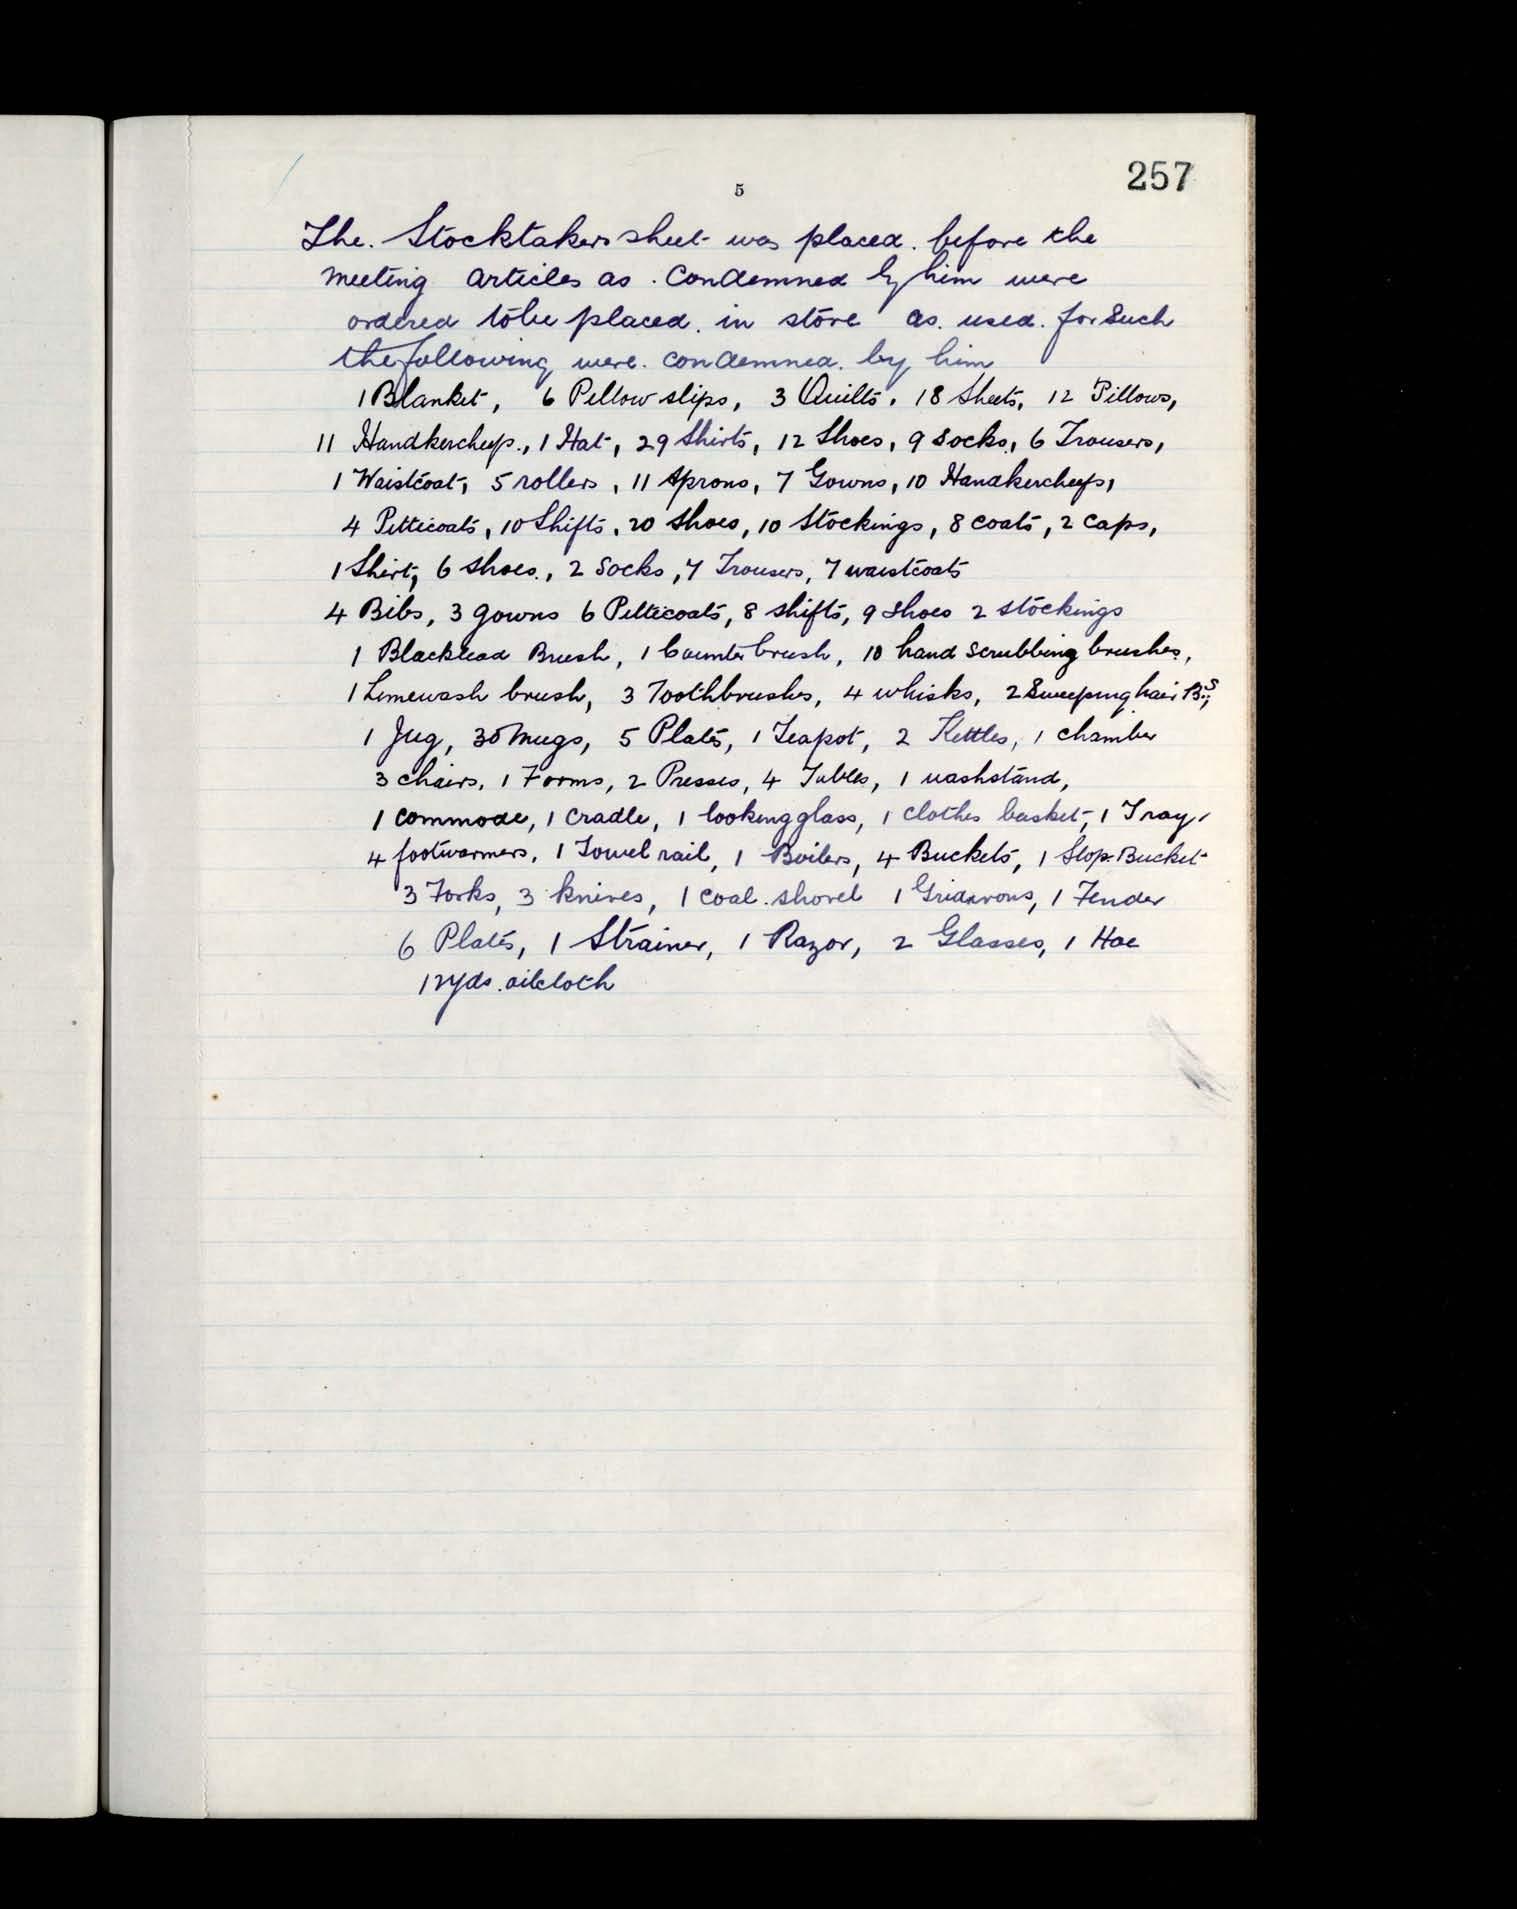 257
5
The. Stocktakers sheet was placed. before the
meeting articles as. Condemned by him were
ordered to be placed. in store as. used. for Such
the following were. condemned. by him
1 Blanket, 6 Pillow slips, 3 Quilts, 18 Sheets, 12 Pillows,
11 Handkercheefs., 1 Hat, 29 Shirts, 12 Shoes, 9 Socks, 6 Trousers,
1 Waistcoat, 5 rollers, 11 Aprons, 7 Gowns, 10 Handkercheefs,
4 Petticoats, 10 Shifts, 20 Shoes, 10 Stockings, 8 coats, 2 caps,
1 Shirt, 6 shoes., 2 Socks, 7 Trousers, 7 waistcoats
4 Bibs, 3 gowns 6 Petticoats, 8 shifts, 9 Shoes 2 stockings
1 Blacklead Brush, 1 Counter brush, 10 hand scrubbing brushes,
1 Limewash brush, 3 Toothbrushes, 4 whisks, 2 Sweeping hair Bs,
1 Jug, 30 Mugs, 5 Plates, 1 Teapot, 2 Kettles, 1 chamber
3 chairs, 1 Forms, 2 Presses, 4 Tables, 1 washstand,
1 commode, 1 cradle, 1 looking glass, 1 clothes basket, 1 Tray,
4 footwarmers, 1 Towel rail, 1 Boilers, 4 Buckets, 1 Slop Bucket
3 Forks, 3 knives, 1 coal. shovel 1 Gridirons, 1 Fender
6 Plates, 1 Strainer, 1 Razor, 2 Glasses, 1 Hoe
12 yds. oilcloth